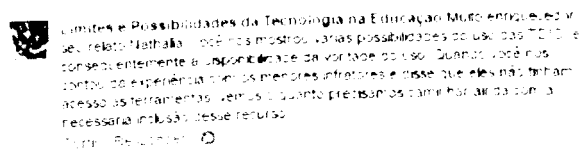 Limites e Possibilidades da Tecnologia na Educação Muito enriquecedor
seu relato Nathalia. Você nos mostrou várias possibilidades do uso das e
consequentemente a disponibilidade da vontade do uso. Quando você nos
contou da experiência com os menores infratores e disse que eles não tinham
acesso as ferramentas, vemos o quanto precisamos caminhar ainda com a
necessária inclusão desse recurso
Curtir Responder